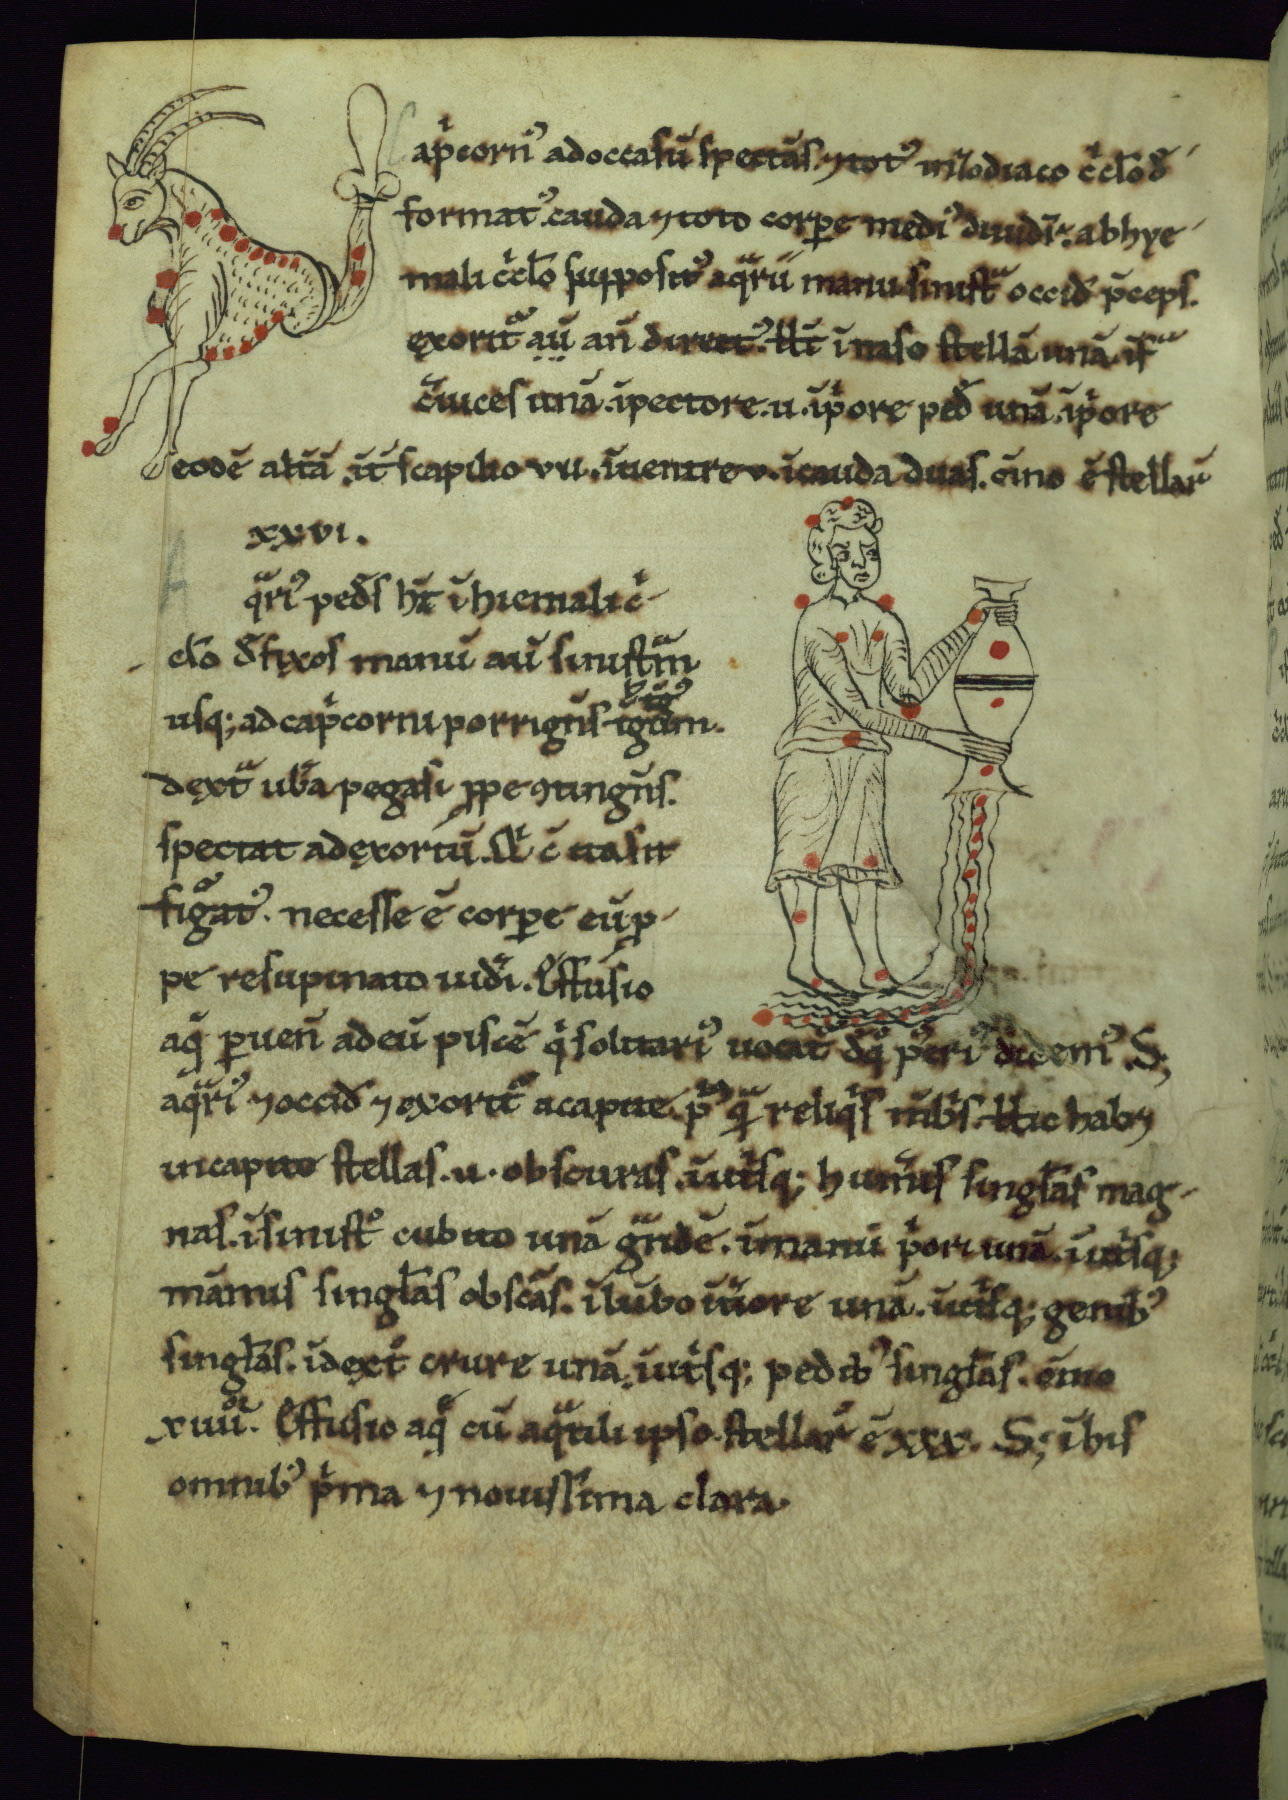 ap̃corn᾽ ad occasũ spectãs. ⁊ tot᾽ in zodiaco c̃clo d̃
format᾽. cauda ⁊ toto corꝑe medi᾽ diuidit̃. ab hye
mali c̃clo supposit᾽ aq̃rii manu sinist̃ occid̃ p̃ceps.
exorit̃ aũ añ direct᾽. ht̃ ĩ naso stellã unã. ĩf̃
c̃uices unã. ĩ pectore .ii. ĩ p̃ore ped̃ unã. ĩ p̃ore
eodẽ altã. ĩt̃ scapilio vii. ĩ uentre v. ĩ cauda duas. õino ẽ stellar̃
xxvi.
q̃ri᾽ pedẽs ht̃ ĩ hiemali c̃
clo d̃fixos manũ aũ sinist̃m
usq; ad cap̃cornu porrigẽs
dext̃ ub̃a pegasi ꝓpe ꝯtingẽs.
spectat ad exortũ. Q̃ c̃ ita sit
fig̃at᾽. necesse ẽ corꝑe eũ ꝓ
pe resupinato uid̃i. Effusio
aq̃ ꝑueñ ad eũ piscẽ q̃ solitari᾽ uocat̃ d̃ q̃ p̃teri᾽ dicem᾽. S;
aq̃ri᾽ ⁊ occid̃ ⁊ exorit̃ a capite. p᾽ q̃ reliq̃s m̃b̃s. hic hab⁊
in capite stellas .ii. obscuras. ĩ ut̃sq; hum̃is singl̃as mag
nas. ĩ sinist̃ cubito unã g̃ndẽ. ĩ manũ p̃ori unã. ĩ ut̃sq;
mãmis singl̃as obsc̃as. ĩ lũbo ĩt̃iore unã. ĩ ut̃sq; genib᾽
singl̃as. ĩ dext̃ crure unã. ĩ ut̃sq; pedib᾽ singl̃as. õino
xiiii. Effusio aq̃ cũ aq̃tili ipso stellar̃ ẽ xxx. S; ĩ his
omnib᾽ p̃ma ⁊ nouissima clara.